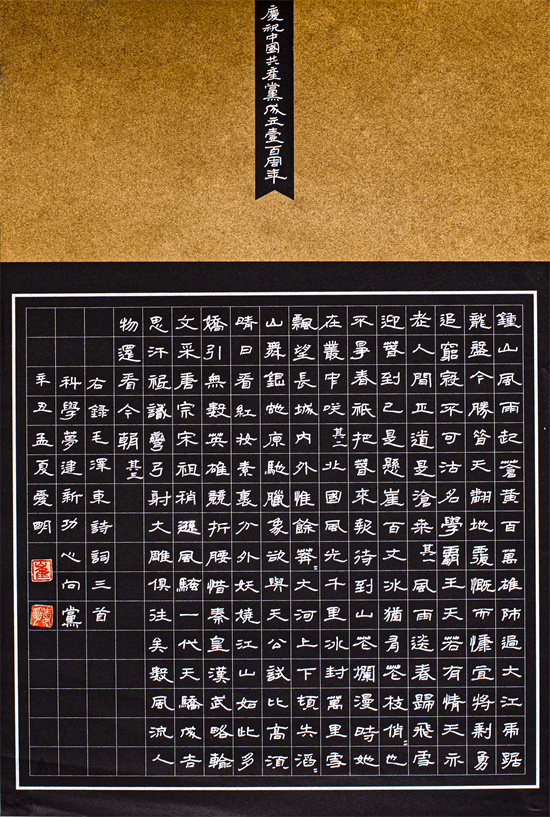 慶祝中國共產黨成立壹百周年
鍾山風雨起蒼黃百萬雄師過大江虎踞
龍盤今勝昔天翻地覆慨而慷宜將剩勇
追窮寇不可沽名學霸王天若有情天亦
老人間正道是滄桑其一風雨送春歸飛雪
迎春到已是懸崖百丈冰猶有花枝俏〻也
不爭春祇把春來報待到山花爛漫時她
在叢中咲其二北國風光千里冰封萬里雪
飄望長城內外惟餘莽〻大河上下頓失滔〻
山舞銀蛇原馳臘象欲與天公試比高須
晴日看紅妝素裏分外妖嬈江山如此多
嬌引無數英雄競折腰惜秦皇漢武略輸
文采唐宗宋祖稍遜風騷一代天驕成吉
思汗祇識彎弓射大雕俱往矣數風流人
物還看今朝其三
右錄毛澤東詩詞三首
科學夢建新功心向黨
辛丑孟夏愛明
崔